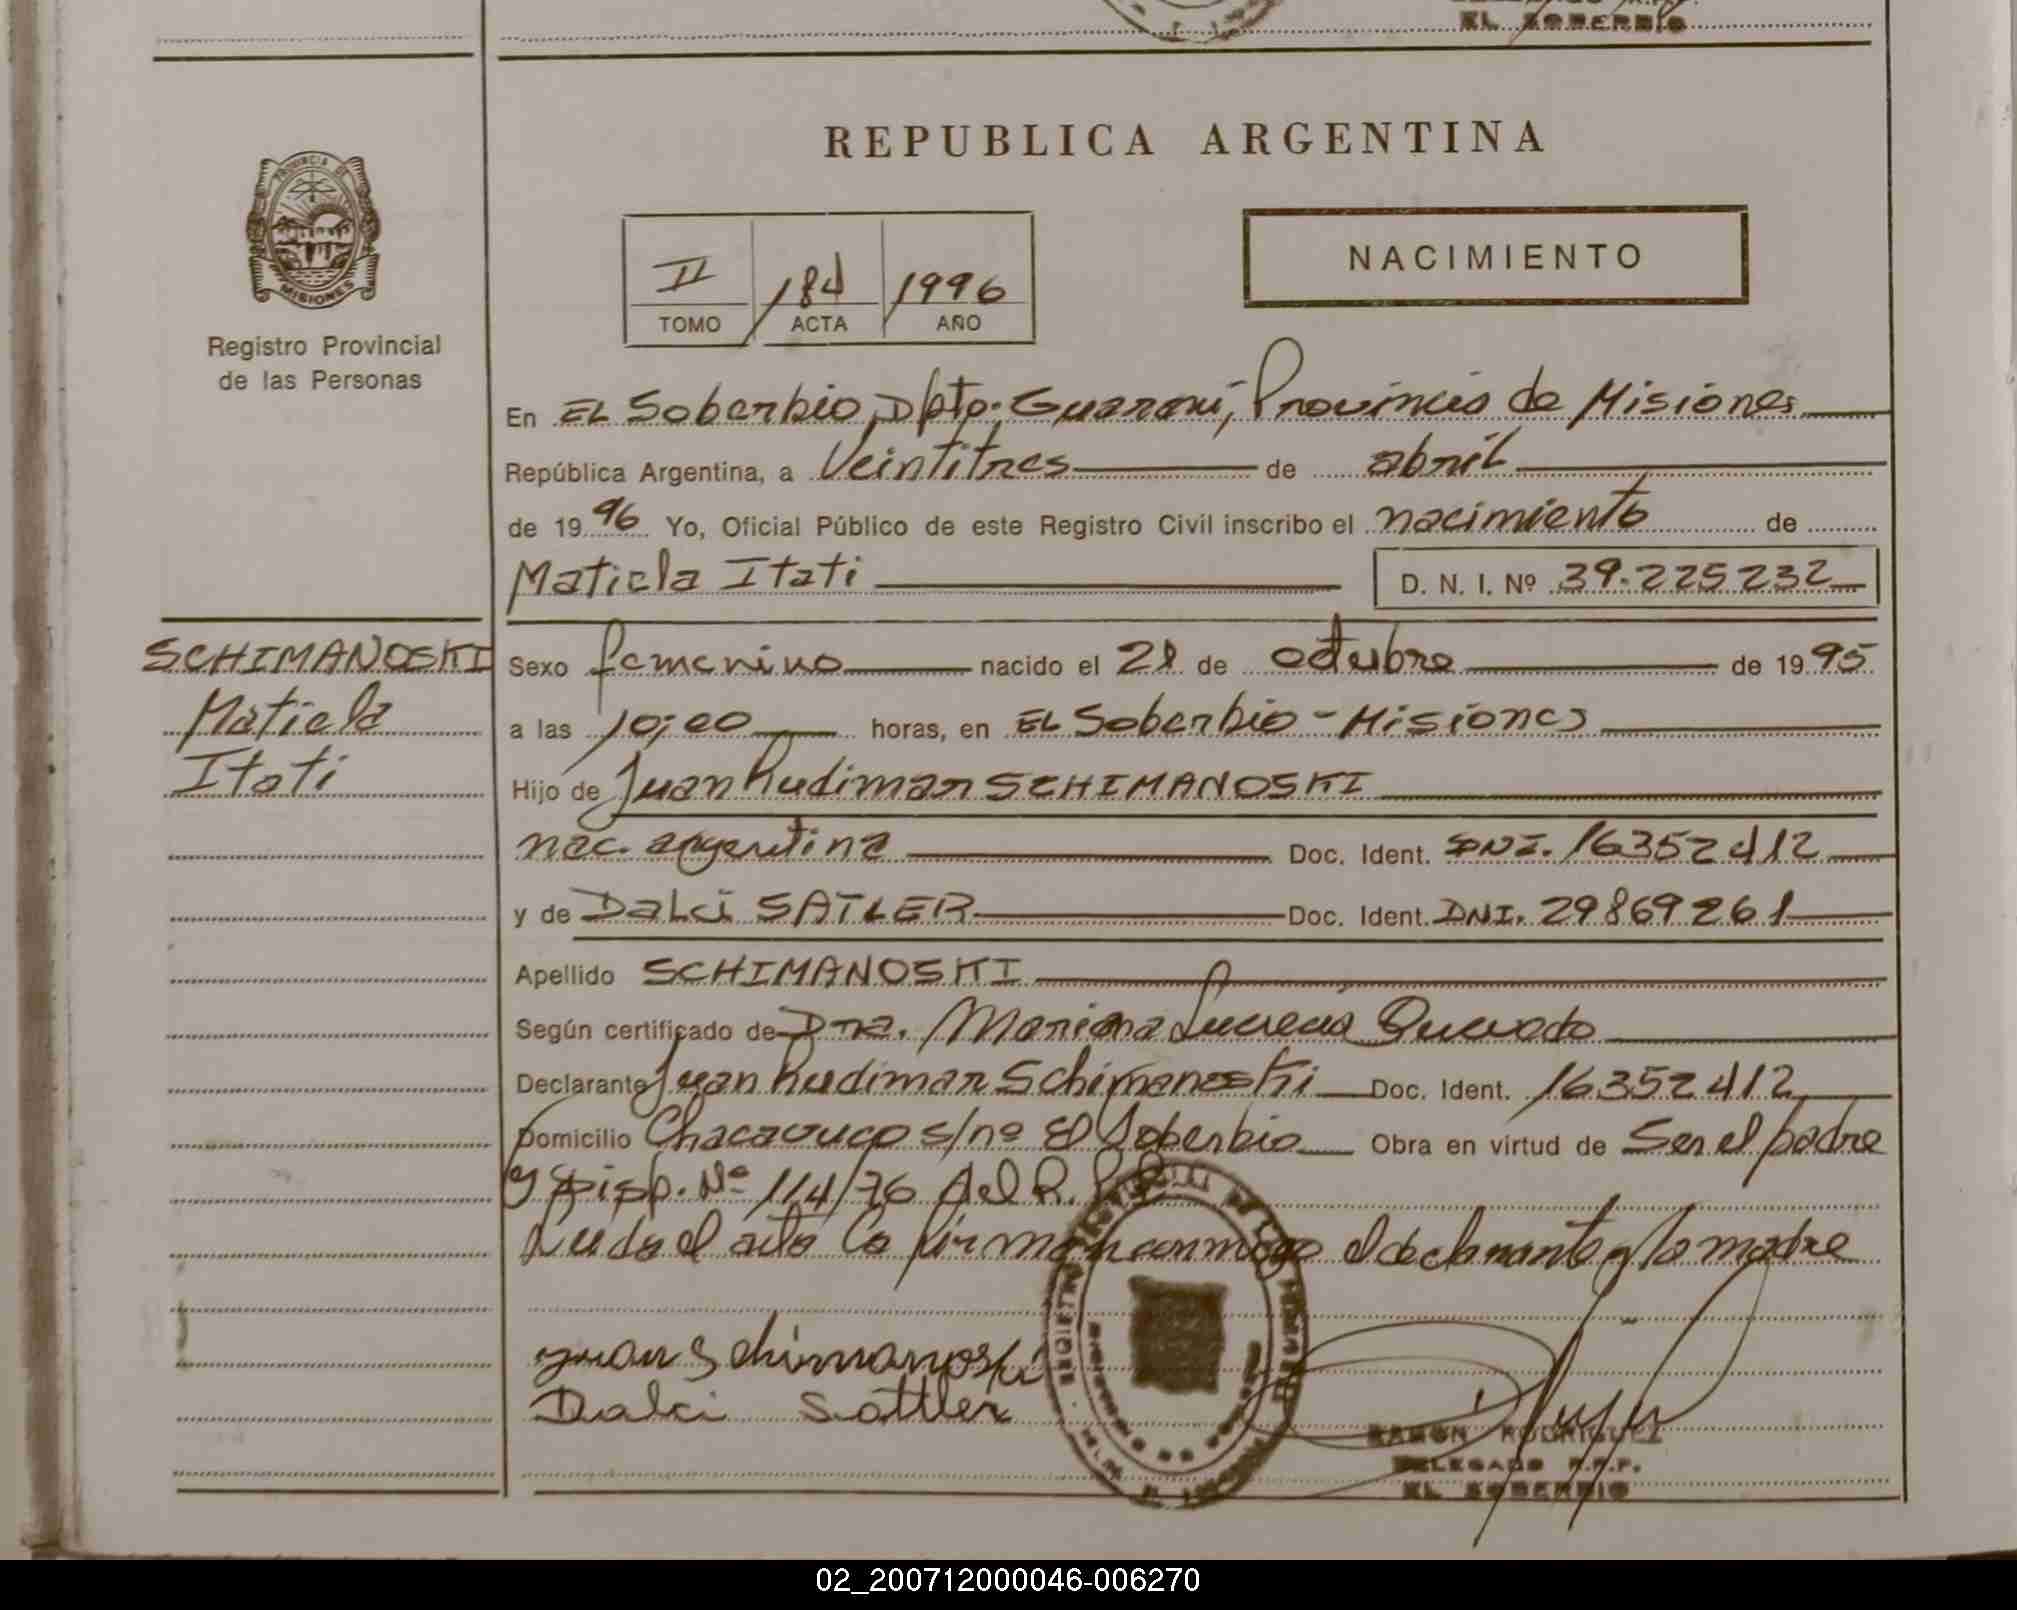 EL SOBERBIO
REPUBLICA ARGENTINA
PROVINCIA DE
MISIONES
Registro Provincial
de las Personas
II 184 1996
TOMO ACTA AÑO
NACIMIENTO
En EL Soberbio, Dpto. Guaraní, Provincia de Misiones
República Argentina, a Veintitres de abril
de 1996 Yo, Oficial Público de este Registro Civil inscribo el nacimiento de
Maticla Itati D. N. I. Nº 39.225232
SCHIMANOSKI
Maticla
Itati
Sexo femenino nacido el 21 de octubre de 1995
a las 10;00 horas, en EL Soberbio - Misiones
Hijo de Juan Rudimar SCHIMANOSKI
nac. argentina Doc. Ident. DNI. 16352412
y de Dalci SATLER Doc. Ident. DNI. 29869261
Apellido SCHIMANOSKI
Según certificado de Dra. Mariana Lucrecia Quevedo
Declarante Juan Rudimar Schimanoski Doc. Ident. 16352412
Domicilio Chacavuco s/nº El Soberbio Obra en virtud de Ser el padre
y Disp. Nº 114/76 del R.P.P.
Leida el acta la firman conmigo el declarante y la madre
Juan Schimanoski
Dalci Sattler
RAMON RODRIGUEZ
DELEGADO R.P.P.
EL SOBERBIO
02_200712000046-006270